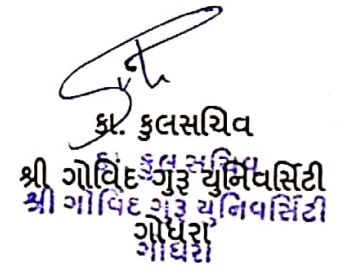 કા. કુલસચિવ
શ્રી ગોવિંદ ગુરૂ યુનિવર્સિટી
ગોધરા
કા. કુલસચિવ
શ્રી ગોવિંદ ગુરૂ યુનિવર્સિટી
ગોધરા